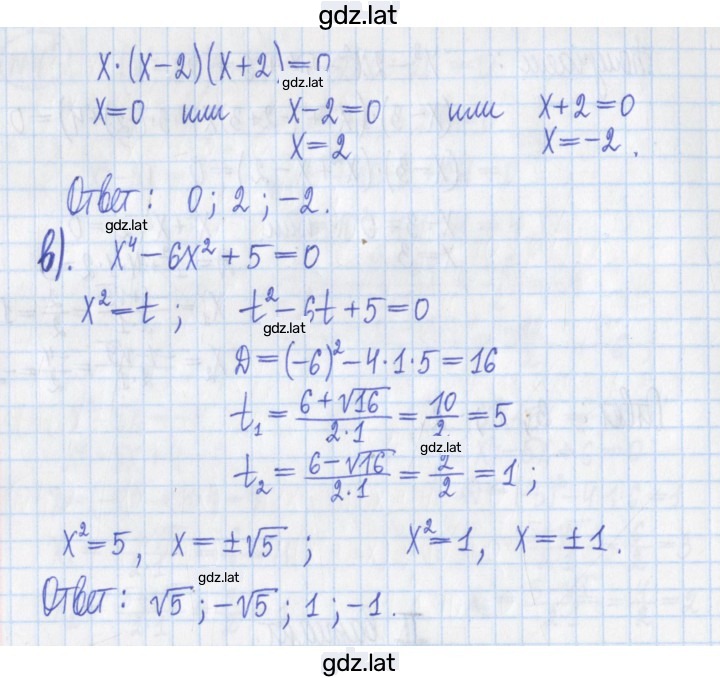 gdz.lat
x·(x-2)(x+2)=0
gdz.lat
x=0 или x-2=0 или x+2=0
x=2 x=-2.
Ответ: 0; 2; -2.
gdz.lat
в). x⁴-6x²+5=0
x²=t; t²-6t+5=0
gdz.lat
Д=(-6)²-4·1·5=16
t₁=(6+√16)/(2·1)=10/2=5
gdz.lat
t₂=(6-√16)/(2·1)=2/2=1;
x²=5, x=±√5; x²=1, x=±1.
gdz.lat
Ответ: √5; -√5; 1; -1.
gdz.lat